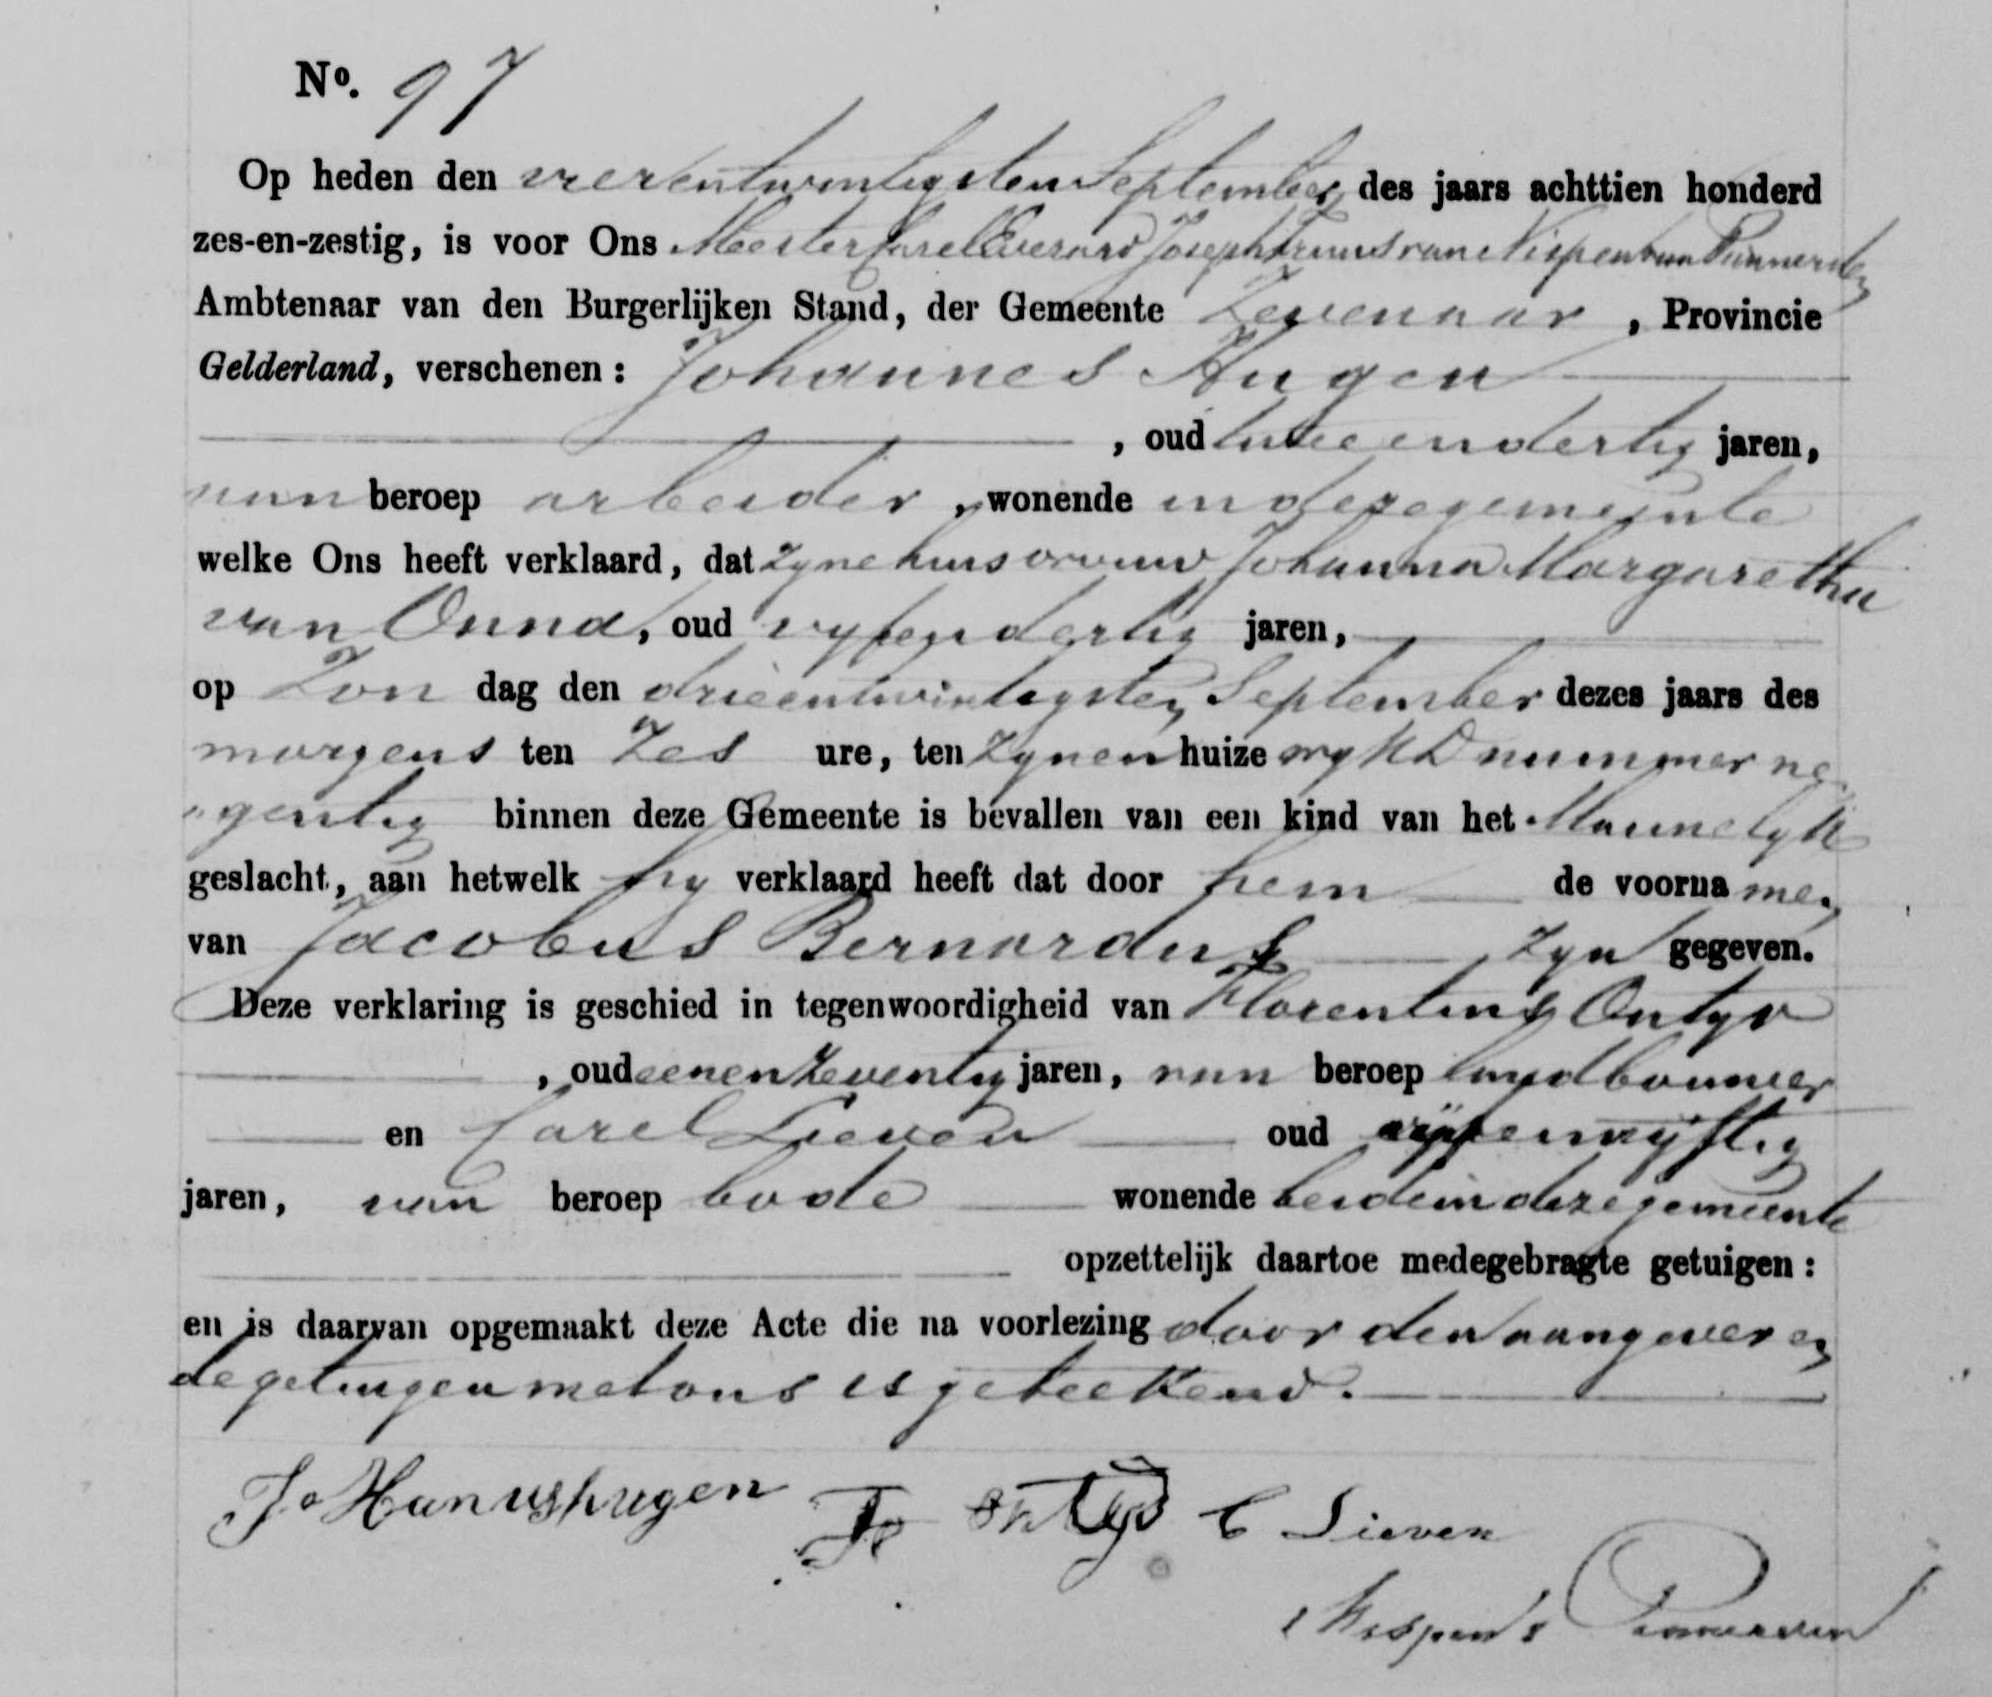 No. 97
Op heden den vierentwintigsten September des jaars achttien honderd
zes-en-zestig, is voor Ons Meester Carel Everard Joseph Frans van Nispen van Pannerden
Ambtenaar van den Burgerlijken Stand, der Gemeente Zevenaar, Provincie
Gelderland, verschenen: Johannes Hugen
, oud twee en dertig jaren,
van beroep arbeider, wonende in deze gemeente
welke Ons heeft verklaard, dat zyne huisvrouw Johanna Margaretha
van Onna, oud vyfendertig jaren,
op Zon dag den drieentwintigsten September dezes jaars des
morgens ten zes ure, ten zynen huize wyk D nummer ne
gentig binnen deze Gemeente is bevallen van een kind van het Mannelyk
geslacht, aan hetwelk hy verklaard heeft dat door hem de voorna men
van Jacobus Bernardus zyn gegeven.
Deze verklaring is geschied in tegenwoordigheid van Florentinus Ontyd
, oud eenenzeventig jaren, van beroep landbouwer
en Carel Lieven oud vijfenvijftig
jaren, van beroep bode wonende beide in deze gemeente
opzettelijk daartoe medegebragte getuigen:
en is daarvan opgemaakt deze Acte die na voorlezing door den aangever en
de getuigen met ons is geteekend.
JoHanus hugen F ontyd C Lieven
Nispen v Pannerden